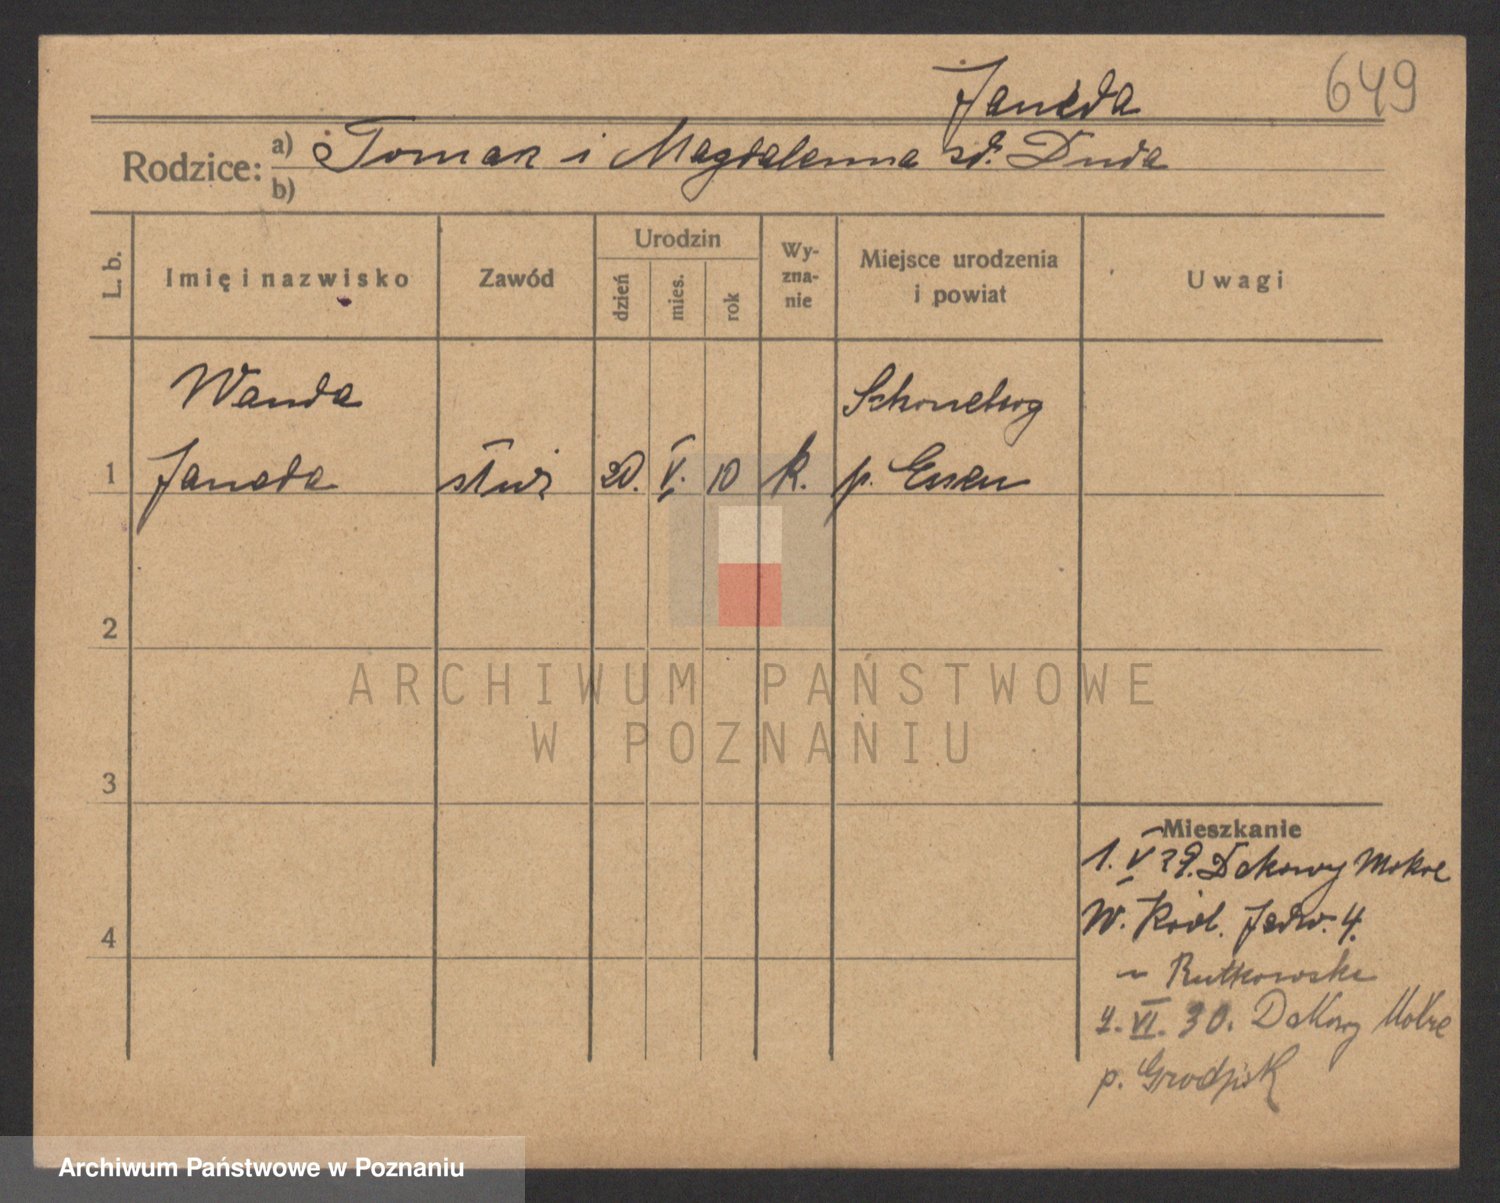 Janeda
649
Rodzice: a) Tomasz i Magdalenna zd. Duda
b)
L. b.
Imię i nazwisko
Zawód
Urodzin
dzień
mies.
rok
Wy-
zna-
nie
Miejsce urodzenia
i powiat
Uwagi
Wanda
Janeda
1
służ
20.
V.
10
k.
p. Essen
2
3
4
Mieszkanie
1. V 29. Dakowy Mokre
W. Król. Jadw. 4.
Rutkowski
4. VI. 30. Dakowy Mokre
p. Grodzisk
ARCHIWUM PAŃSTWOWE
W POZNANIU
Archiwum Państwowe w Poznaniu